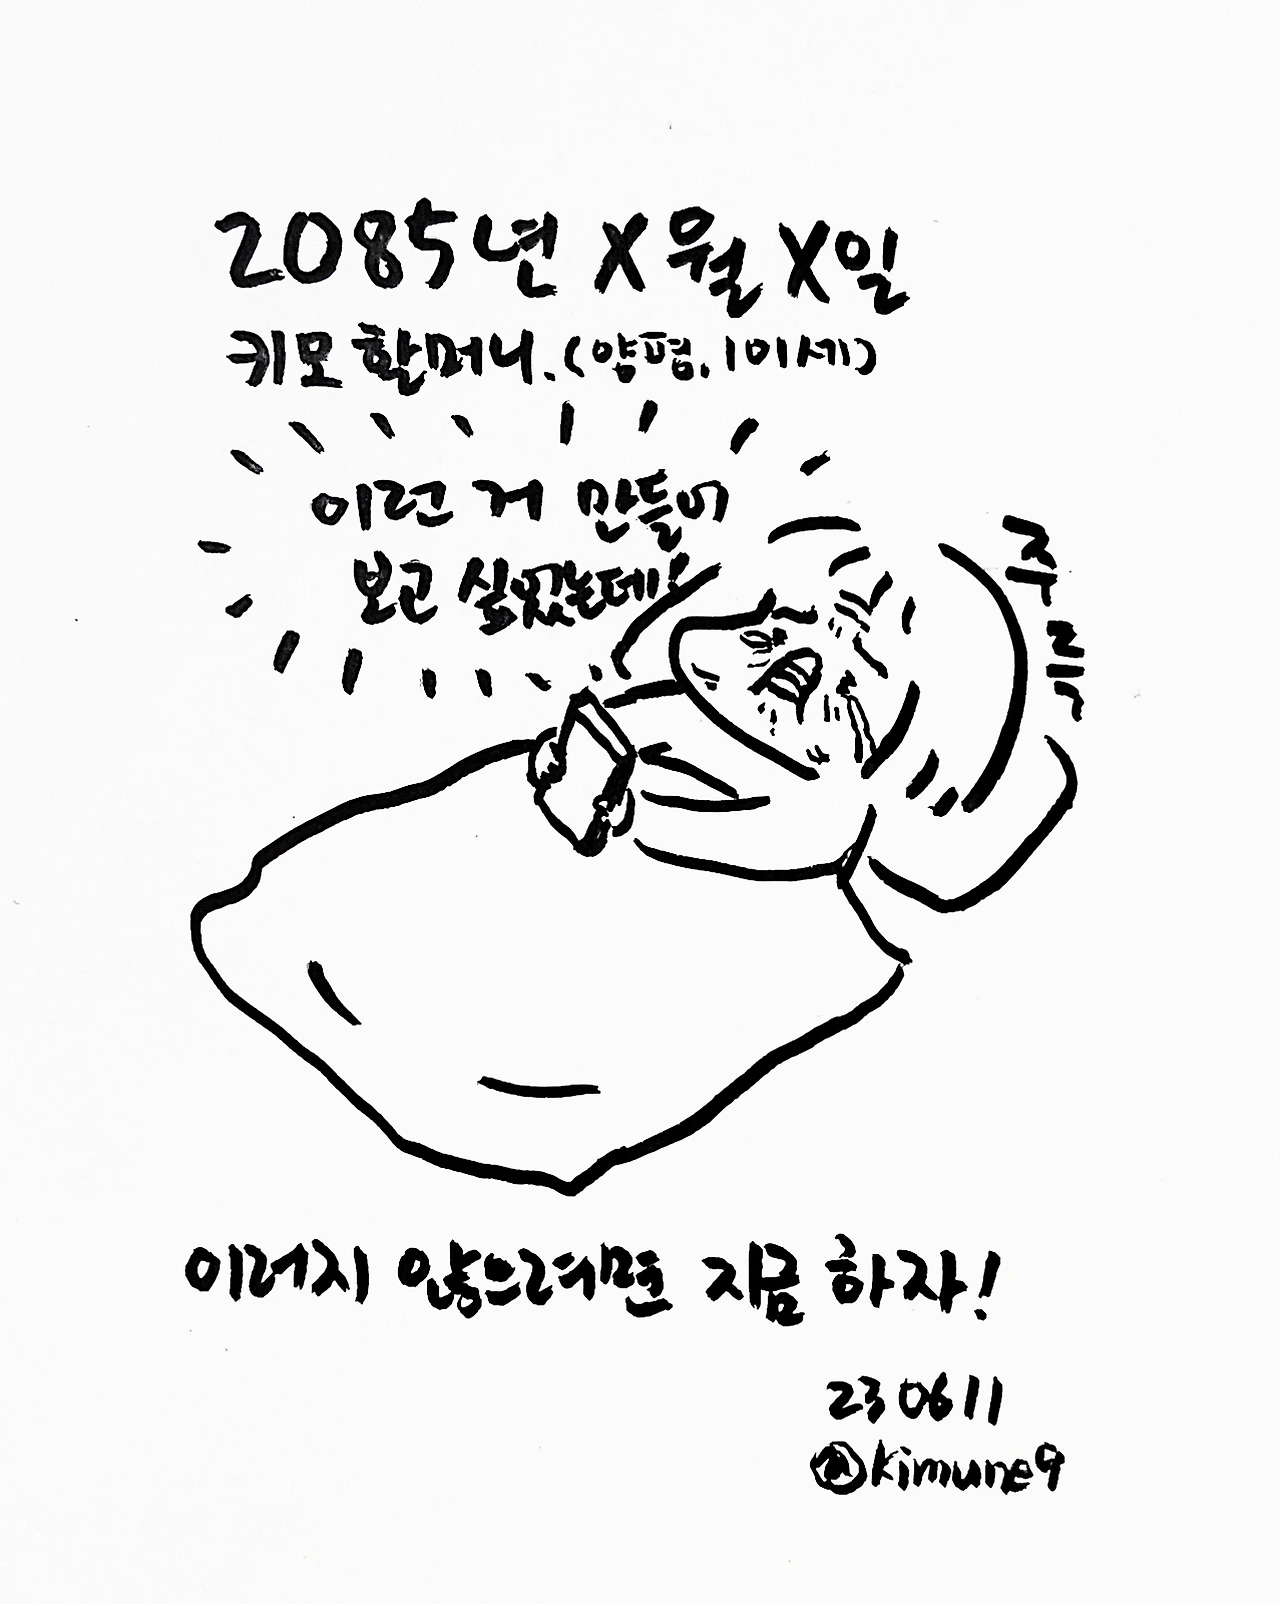 2085년 X월 X일
키모 할머니.(양평.101세)
이런 거 만들어
보고 싶었는데!
주
륵
이러지 않으려면 지금 하자!
230611
@kimune9